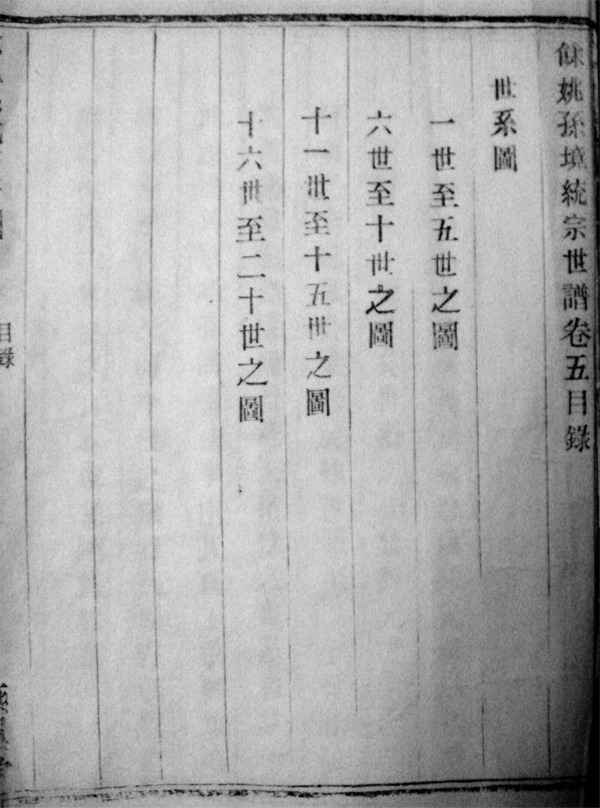 姚孫境統宗世譜卷五目錄
世系圖
一世至五世之圖
六世至十世之圖
十一世至十五世之圖
十六世至二十世之圖
目錄